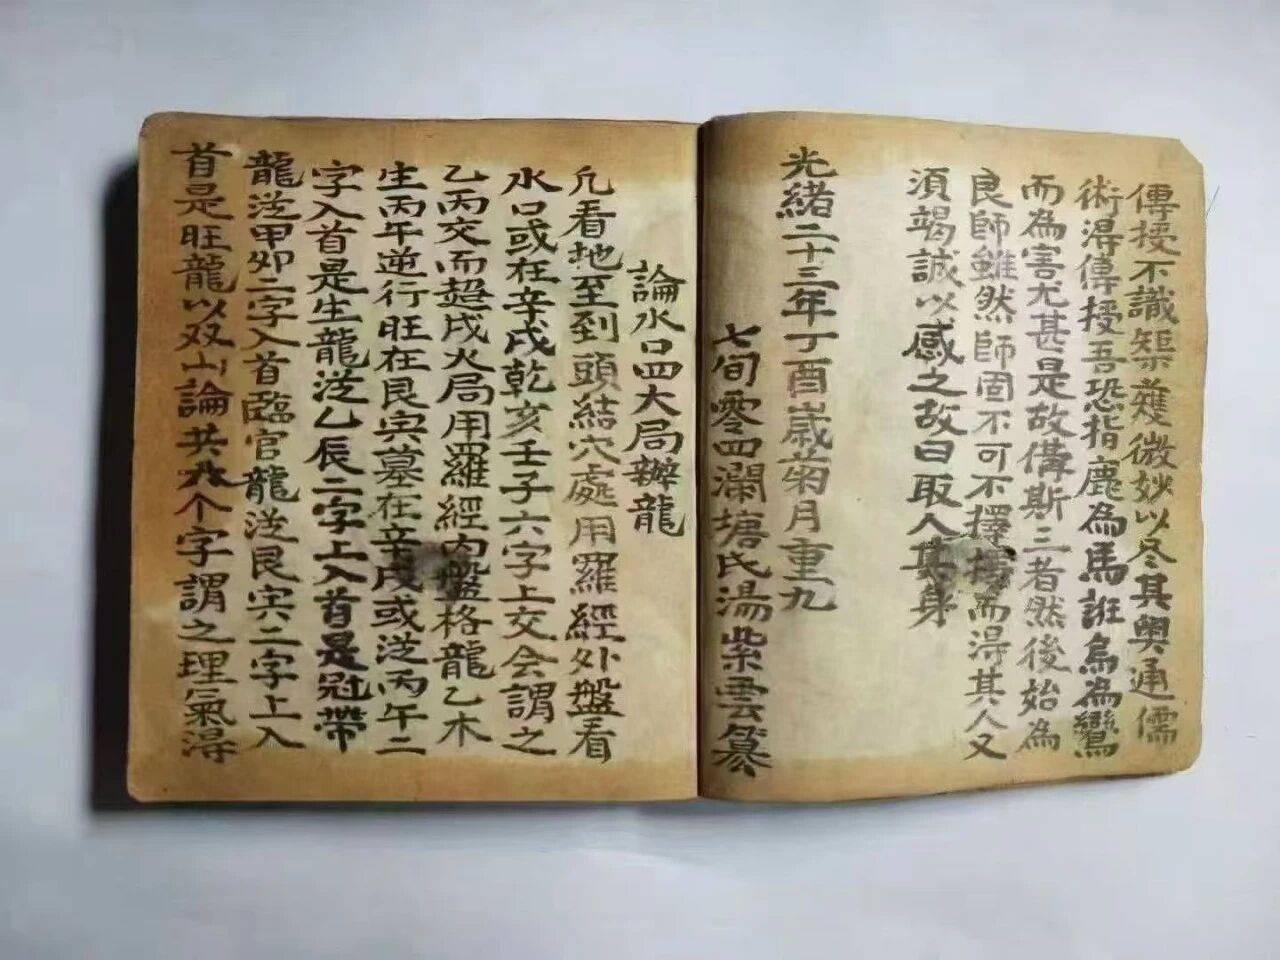 傳授不識榘薙微妙以尽其奧通儒
術淂傳授吾恐指鹿為馬誑烏為鸞
而為害尤甚是故偹斯三者然後始為
良師雖然師固不可不擇擇而淂其人又
須竭誠以感之故曰取人其身
光緒二十三年丁酉歲菊月重九
七旬零四瀾塘氏湯紫雲纂
論水口四大局辦龍
凢看地至到頭結穴處用羅經外盤看
水口或在辛戌乾亥壬子六字上交会謂之
乙丙交而趨戌火局用羅經內盤格龍乙木
生丙午逆行旺在艮寅墓在辛戌或泛丙午二
字入首是生龍泛乙辰二字上入首是冠帶
龍泛甲卯二字入首臨官龍泛艮寅二字上入
首是旺龍以双山論共八个字謂之理氣淂